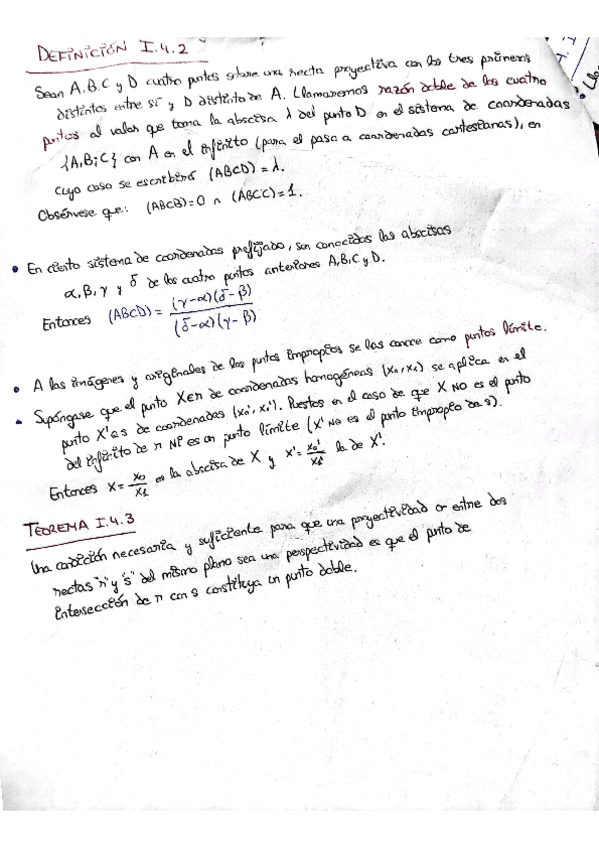 DEFINICIÓN I.4.2
Sean A,B,C y D cuatro puntos sobre una recta proyectiva con los tres primeros
distintos entre sí y D distinto de A. Llamaremos razón doble de los cuatro
puntos al valor que toma la abscisa λ del punto D en el sistema de coordenadas
{A,B;C} con A en el infinito (para el paso a coordenadas cartesianas), en
cuyo caso se escribirá (ABCD)=λ.
Obsérvese que: (ABCB)=0 ∧ (ABCC)=1.
• En cierto sistema de coordenadas prefijado, son conocidas las abscisas
α, β, γ y δ de los cuatro puntos anteriores A,B,C y D.
Entonces (ABCD) = (γ-α)(δ-β) / (δ-α)(γ-β)
• A las imágenes y originales de los puntos impropios se les conoce como puntos límite.
• Supóngase que el punto X∈r de coordenadas homogéneas (x₀,x₁) se aplica en el
punto X'∈s de coordenadas (x₀',x₁'). Puestos en el caso de que X NO es el punto
del infinito de r NI es un punto límite (X' NO es el punto impropio de s).
Entonces x = x₀/x₁ es la abscisa de X y x' = x₀'/x₁' la de X'.
TEOREMA I.4.3
Una condición necesaria y suficiente para que una proyectividad σ entre dos
rectas "r" y "s" del mismo plano sea una perspectividad es que el punto de
intersección de r con s constituya un punto doble.